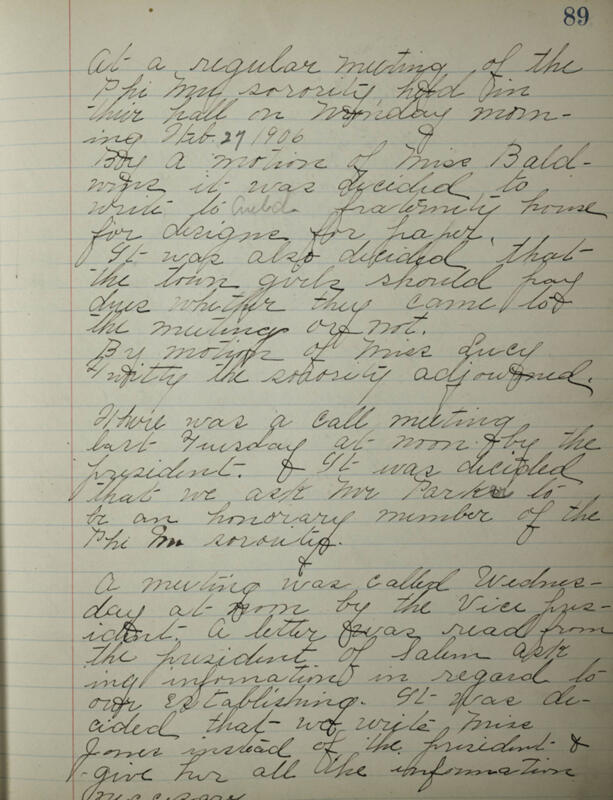 89
At a regular meeting of the
Phi Mu sorority held in
their hall on Monday morn-
ing Feb. 27 1906
By a motion of Miss Bald-
wins it was decided to
write to fraternity house
for designs for paper.
It was also decided that
the town girls should pay
dues whether they came to
the meeting or not.
By motion of Miss Lucy
the sorority adjourned.
There was a call meeting
last Tuesday at noon by the
president. It was decided
that we ask Mr Parks to
be an honorary member of the
Phi Mu sorority.
A meeting was called Wednes-
day at noon by the Vice pres-
ident. A letter was read from
the president of Salem ask
ing information in regard to
our establishing. It was de-
cided that we write Miss
Jones instead of the president &
give her all the information
necessary